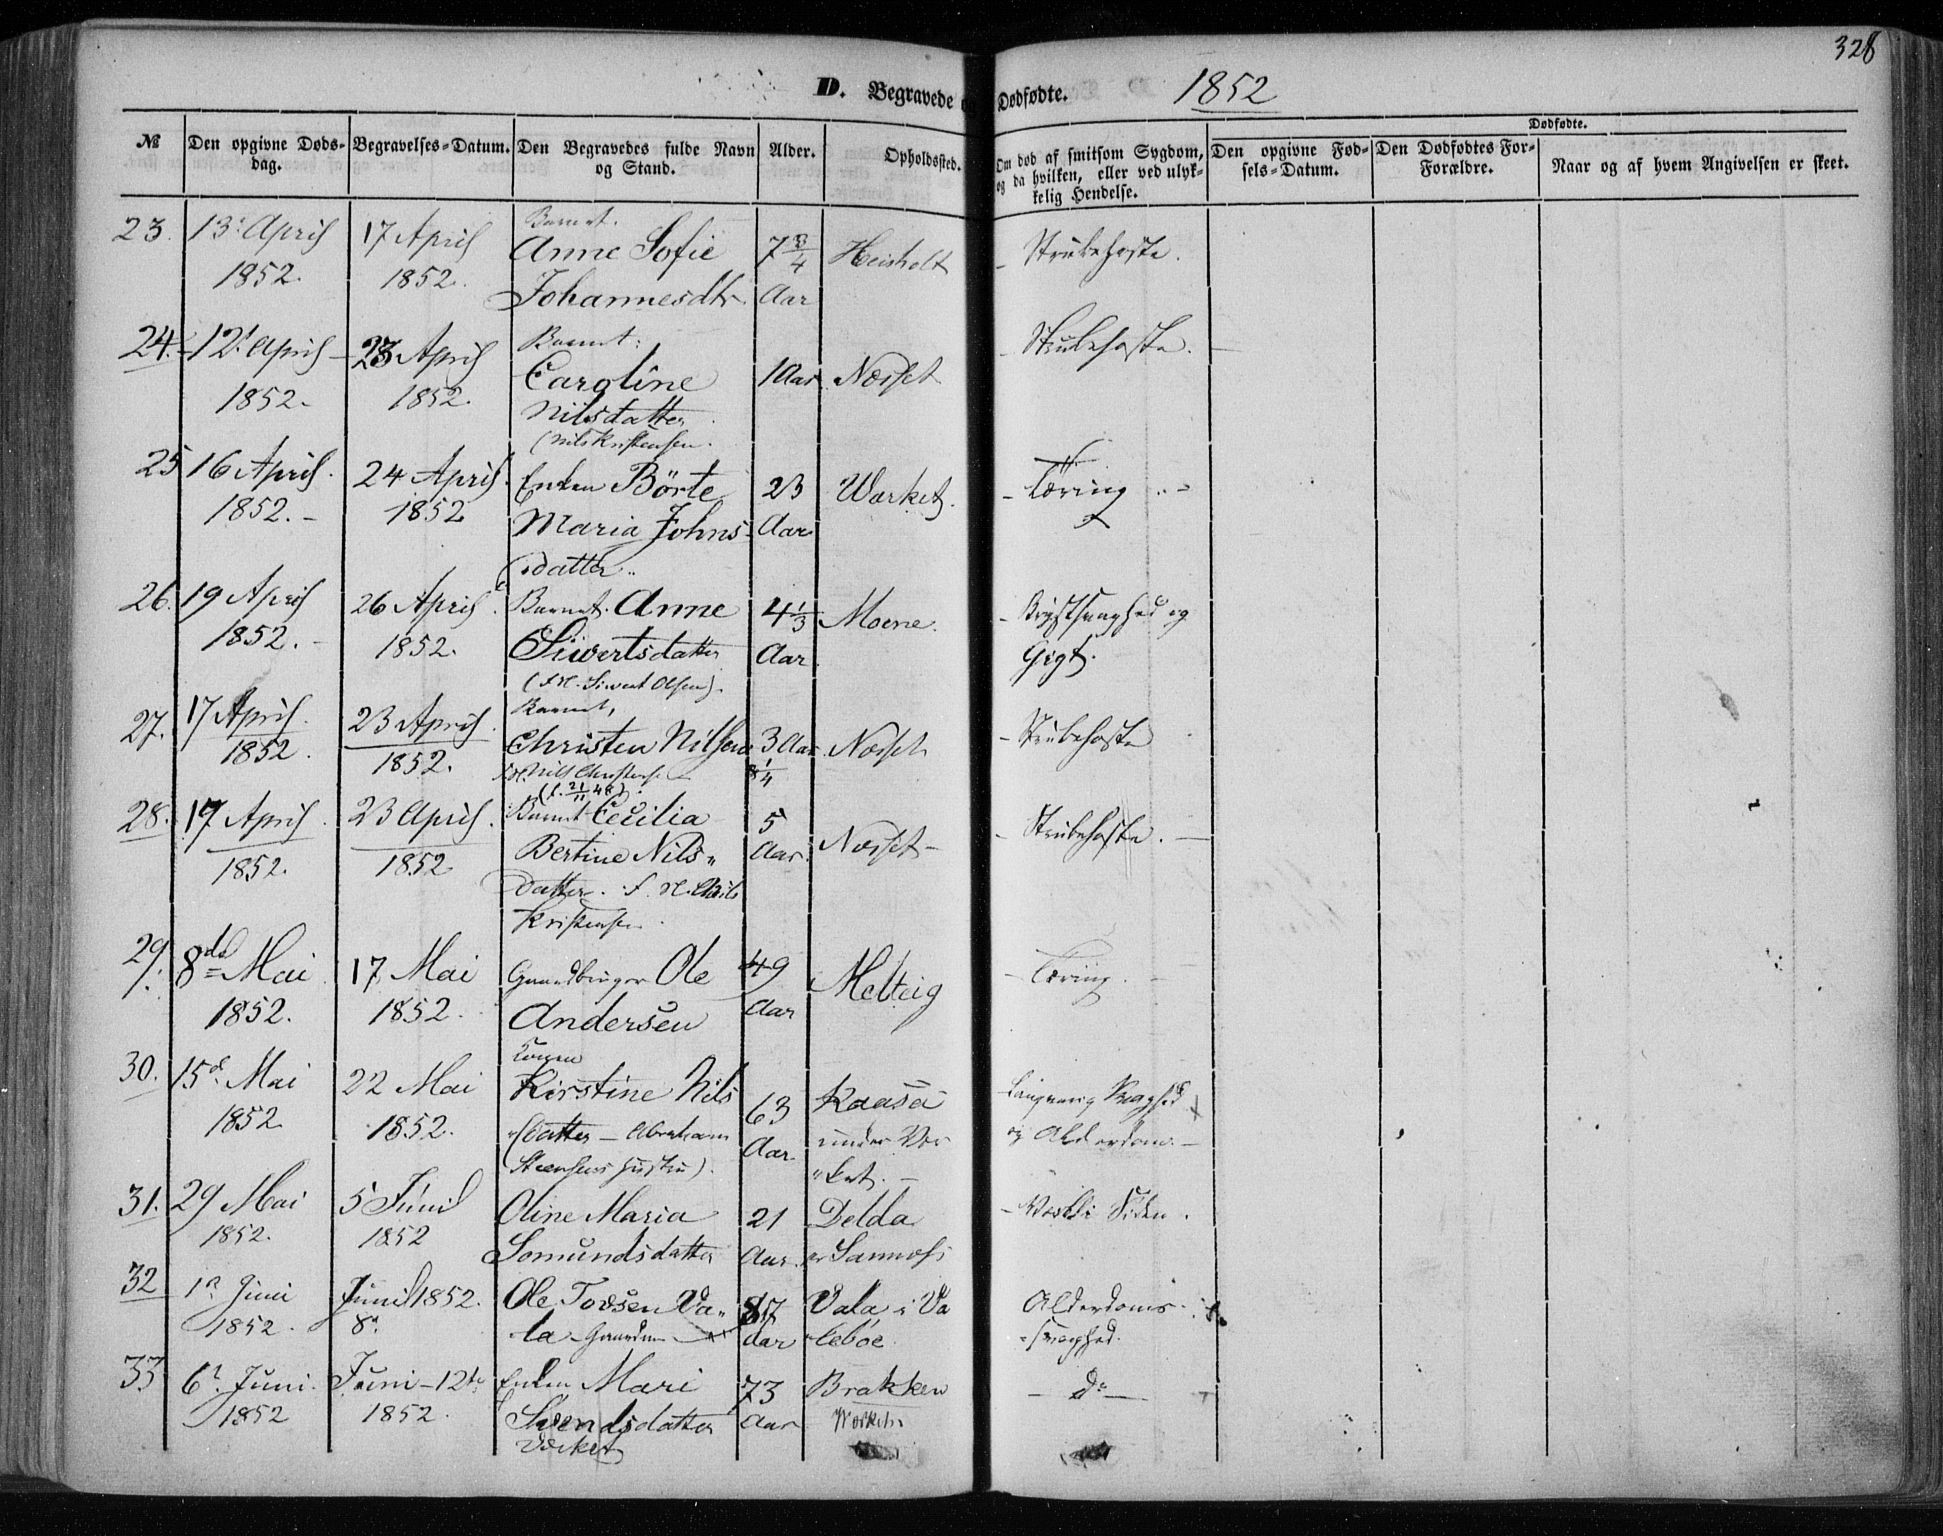 328
D. Begravede og Dødfødte. 1852
№
Den opgivne Døds-
dag.
Begravelses-Datum.
Den Begravedes fulde Navn
og Stand.
Alder.
Opholdssted.
Om død af smitsom Sygdom,
og da hvilken, eller ved ulyk-
kelig Hendelse.
Dødfødte.
Den opgivne Fød-
sels-Datum.
Den Dødfødtes For-
Forældre.
Naar og af hvem Angivelsen er skeet.
23. 13. April 17 April Barnet.
Anne Sofie 7 3/4 Heisholt - Strubehoste.
1852. 1852. Johannesdtr Aar
24. - 12. April - 23 April Barnet:
Caroline 1 Aar Nøsset - Strubehoste. -
1852. 1852. Nilsdatter
(Nils Kristensen.
25 16 April. 24 April. Enken Börte 23 Værket. - Tæring
1852. - 1852 Maria Johns- Aar
datter
26. 19 April 26 April. Barnet. Anne 4 1/3 Moene. - Brystsvaghed og
1852. - 1852. Siwertsdatter Aar. Gigt.
(F. N. Siwert Olsen).
27. 17 April. 23 April. Barnet,
Christen Nilsen 3 Aar Nøsset - Strubehoste
1852. 1852. Nils Christensen 1/4
(f. 21/11 48).
28. 17 April. 23 April. Barnet Cecilia 5
Bertine Nils„ Aar. Nøsset - - Strubehoste. -
1852. 1852 datter. F. N. Nils
Kristensen.
29. 8de Mai 17 Mai Gaardbruger Ole 49 Melteig - Tæring. -
1852. 1852. Andersen Aar
30. 15d. Mai 22 Mai Konen
Kirstine Nils 63 Kaasa Langvarig Svaghed
1852 1852. datter - Abraham Aar under Vær og Alderdom. -
Steensens Hustru). „ket. -
31. 29 Mai 5 Juni Oline Maria 21 Delda - Værk i Siden.
1852. 1852 Somundsdatter Aar.
32 1n Juni Juni 1852. Ole Tovsen Va„ 87 Vala i Va Alderdoms-
1852. 8n. la - Gaardm Aar lebøe. =svaghed.
33 6n. Juni. Juni - 12te Enken Mari 73 Brakken - do -
1852 1852. Svendsdatter Aar Værket
Værket